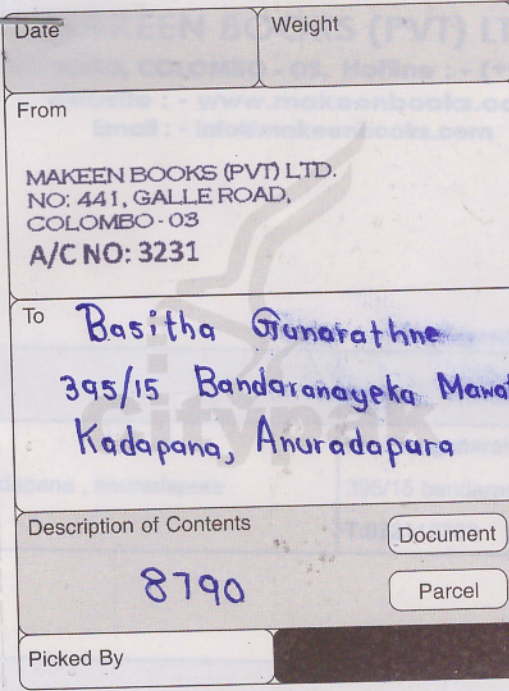 Date
Weight
From
MAKEEN BOOKS (PVT) LTD.
NO: 441, GALLE ROAD,
COLOMBO - 03
A/C NO: 3231
To
Basitha Gunarathne
395/15 Bandaranayeka
Kadapana, Anuradapura
Citypak
Description of Contents
Document
8790
Parcel
Picked By